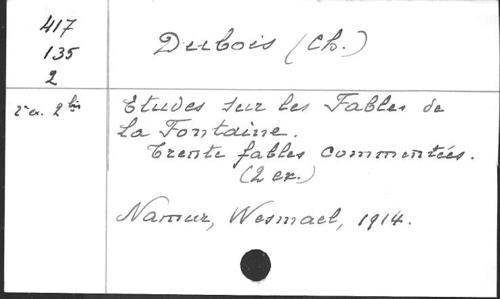 417
135
2
Dubois (Ch.)
2e ex. 2 bis
Etudes sur les Fables de
La Fontaine.
Trente fables commentées.
(2 ex.)
Namur, Wesmael, 1914.